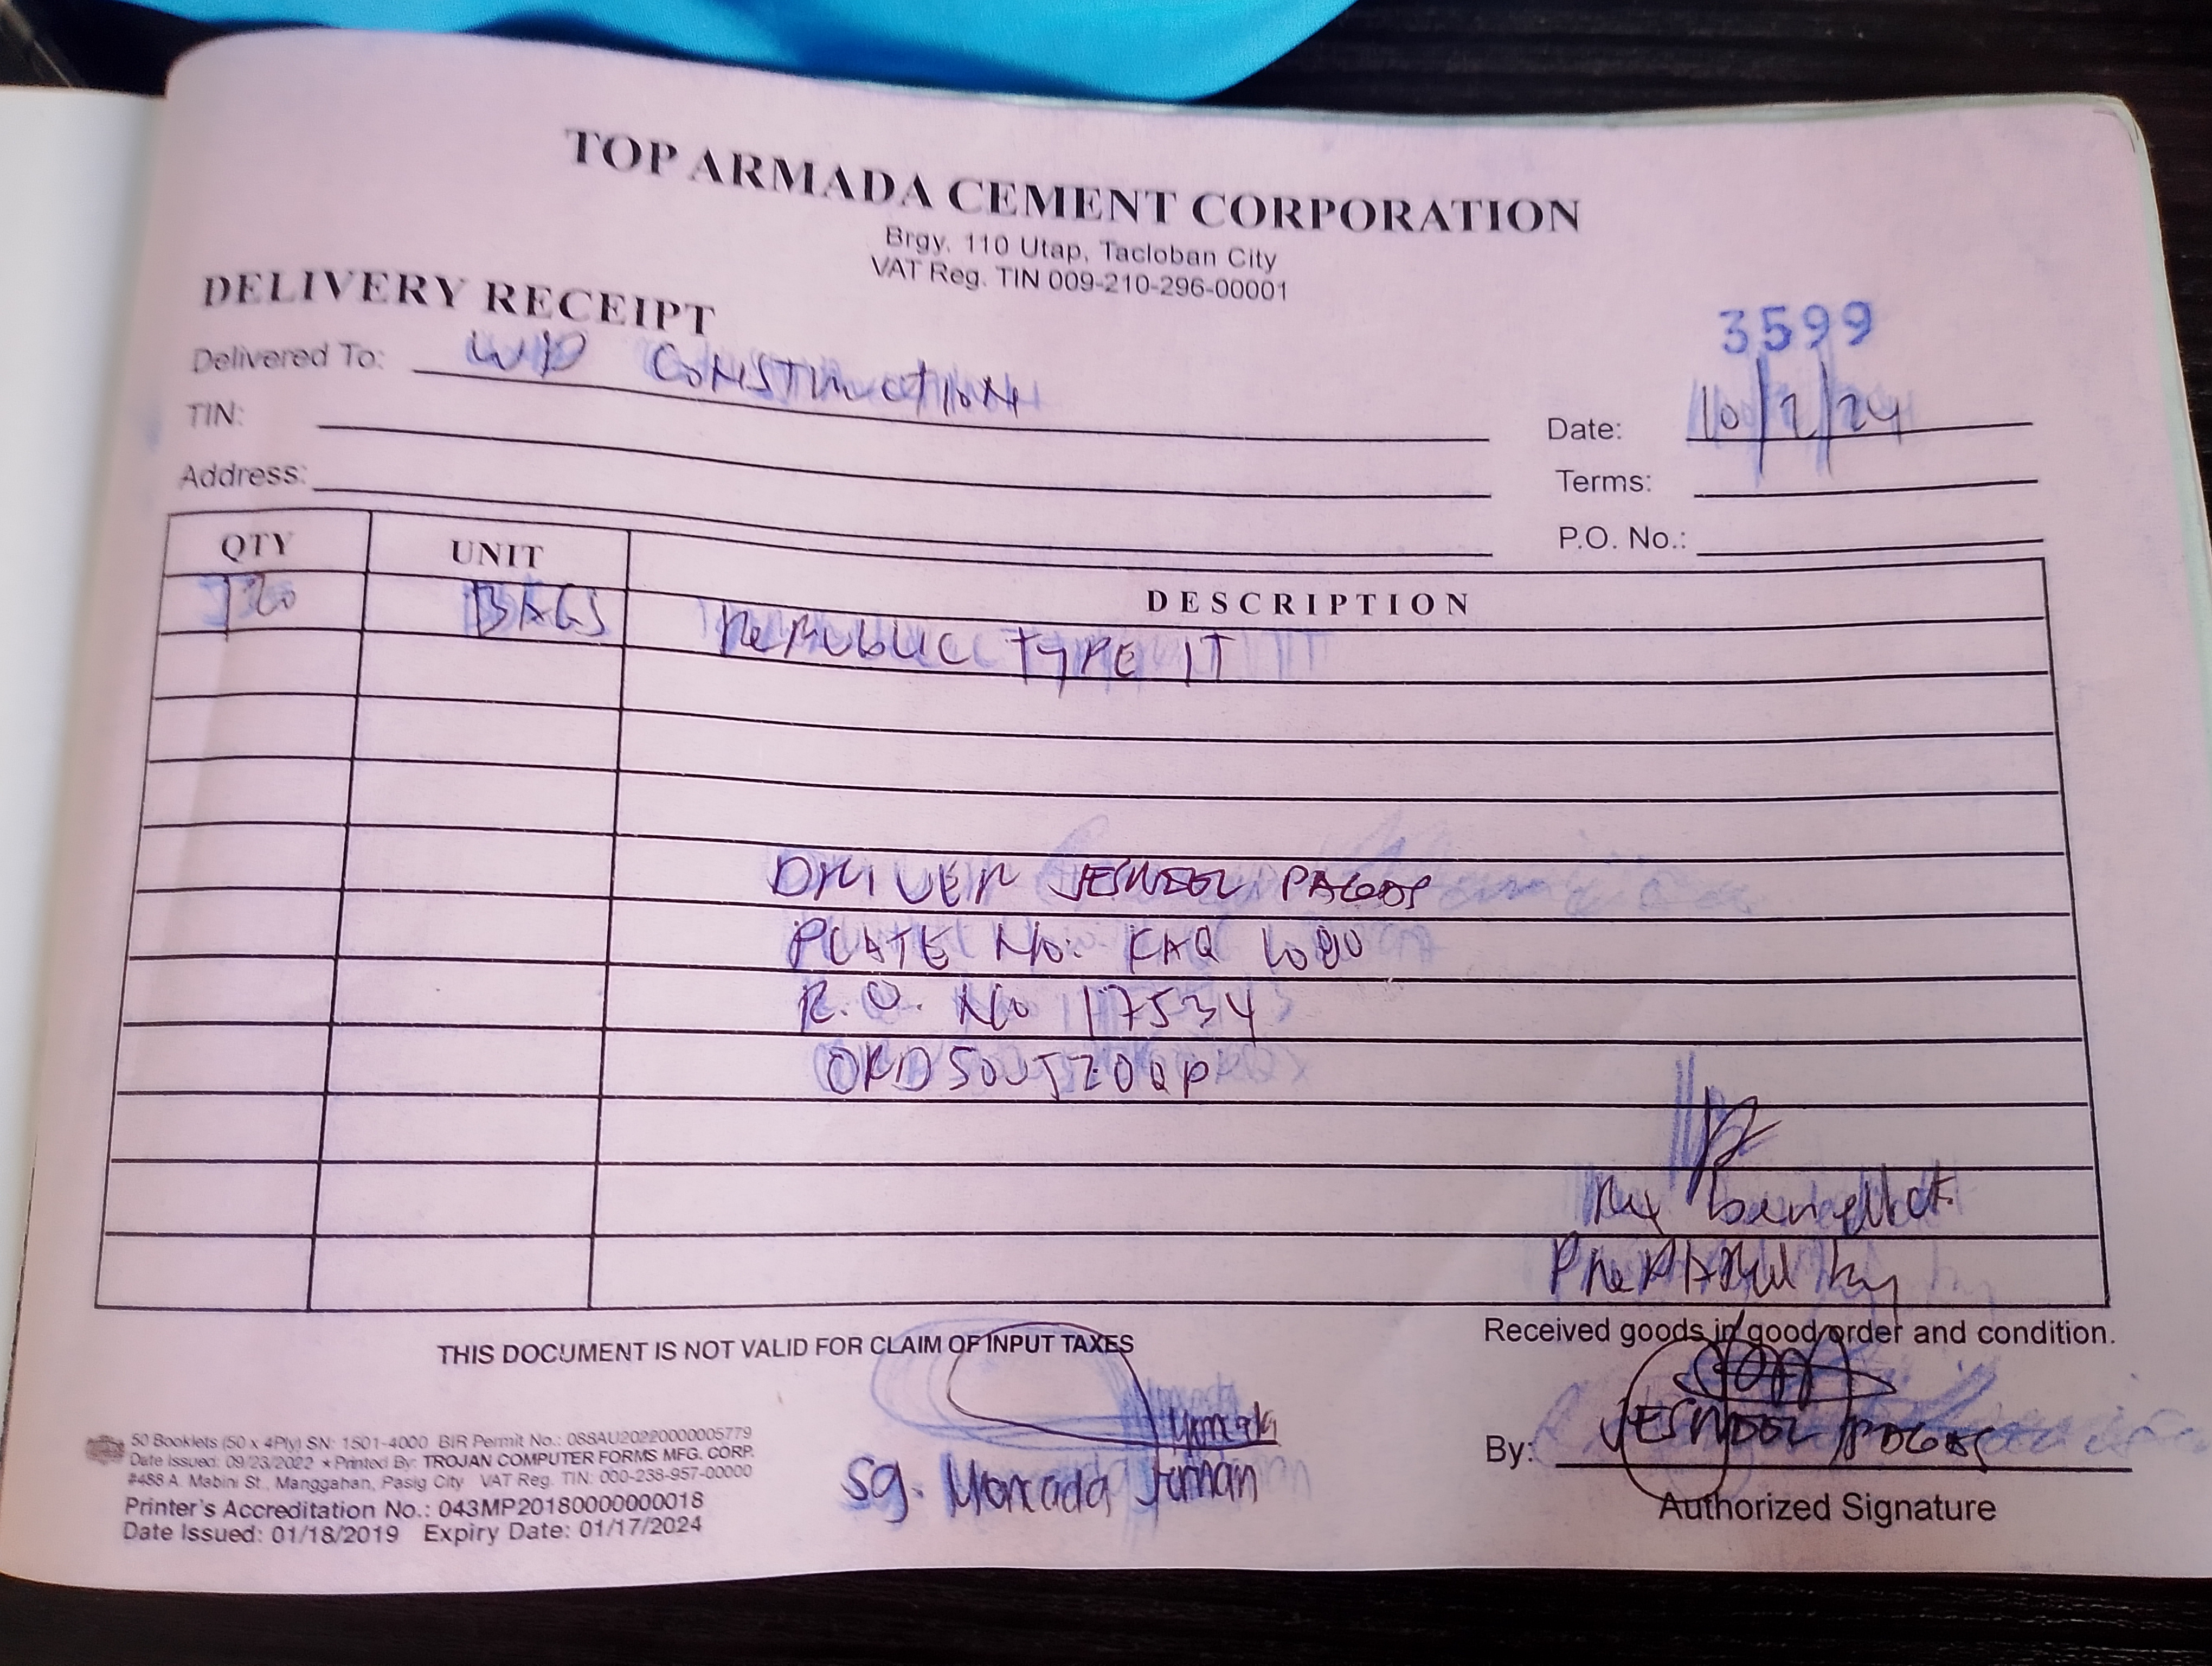 TOP ARMADA CEMENT CORPORATION
Brgy. 110 Utap, Tacloban City
VAT Reg. TIN 009-210-296-00001
DELIVERY RECEIPT
3599
Delivered To: CONSTRUCTION
TIN:
Date: 10/2/24
Address:
Terms:
P.O. No.:
QTY UNIT DESCRIPTION
BAGS REPUBLIC TYPE 1T
DRIVER JESWDEL
PLATE No: KAQ
R.O. No 17534
THIS DOCUMENT IS NOT VALID FOR CLAIM OF INPUT TAXES
Received goods in good order and condition.
Sg. Moncada
By: JESWDEL
Authorized Signature
50 Booklets (50 x 4Ply) SN: 1501-4000 BIR Permit No.: 088AU20220000005779
Date Issued: 09/23/2022 ★ Printed By: TROJAN COMPUTER FORMS MFG. CORP.
#488 A. Mabini St., Manggahan, Pasig City VAT Reg. TIN: 000-238-957-00000
Printer's Accreditation No.: 043MP20180000000018
Date Issued: 01/18/2019 Expiry Date: 01/17/2024